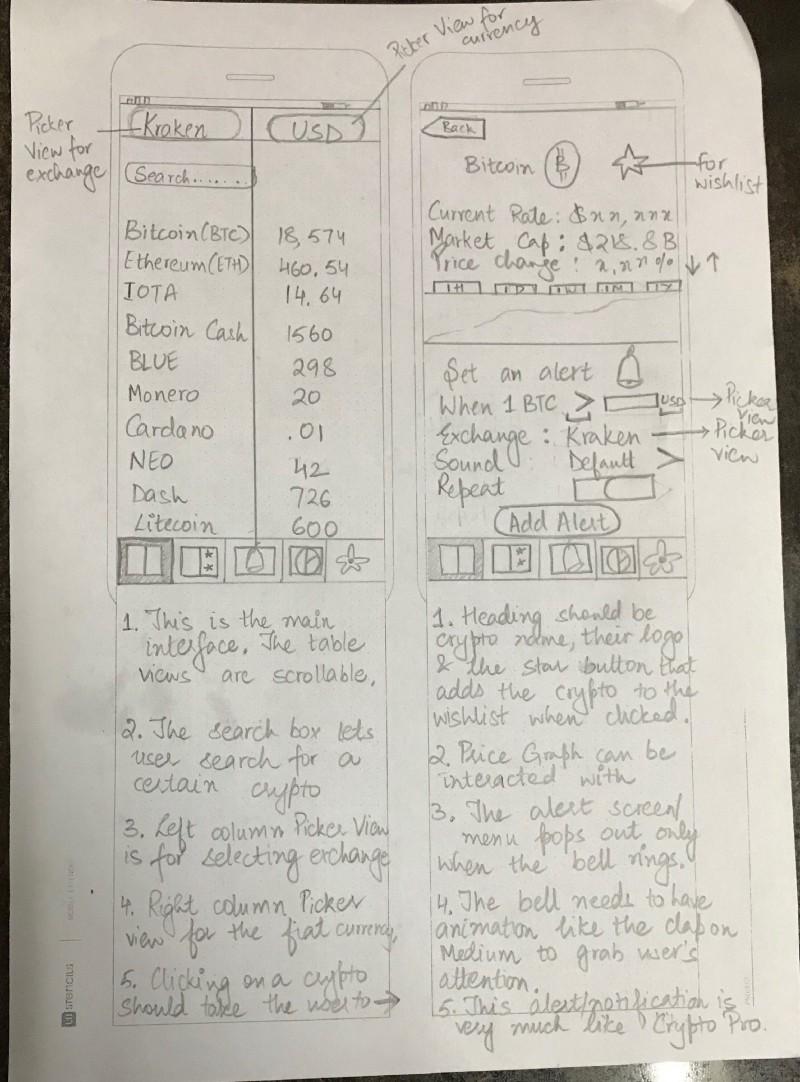 Picker View for
currency
Picker
View for
exchange
Kraken
USD
Search.......
Bitcoin(BTC) 18,574
Ethereum(ETH) 460.54
IOTA 14.64
Bitcoin Cash 1560
BLUE 298
Monero 20
Cardano .01
NEO 42
Dash 726
Litecoin 600
1. This is the main
interface. The table
views are scrollable.
2. The search box lets
user search for a
certain crypto
3. Left column Picker View
is for selecting exchange
4. Right column Picker
view for the fiat currency.
5. Clicking on a crypto
should take the user to →
Back
Bitcoin B
for
wishlist
Current Rate: $xx,xxx
Market Cap: $218.8B
Price change: x.xx% ↓↑
1H 1D 1W 1M 1Y
Set an alert
When 1 BTC > USD → Picker
View
Exchange: Kraken → Picker
view
Sound Default >
Repeat
Add Alert
1. Heading should be
crypto name, their logo
& the star button that
adds the crypto to the
wishlist when clicked.
2. Price Graph can be
interacted with
3. The alert screen/
menu pops out only
when the bell rings.
4. The bell needs to have
animation like the clap on
Medium to grab user's
attention.
5. This alert/notification is
very much like Crypto Pro.
UI STENCILS